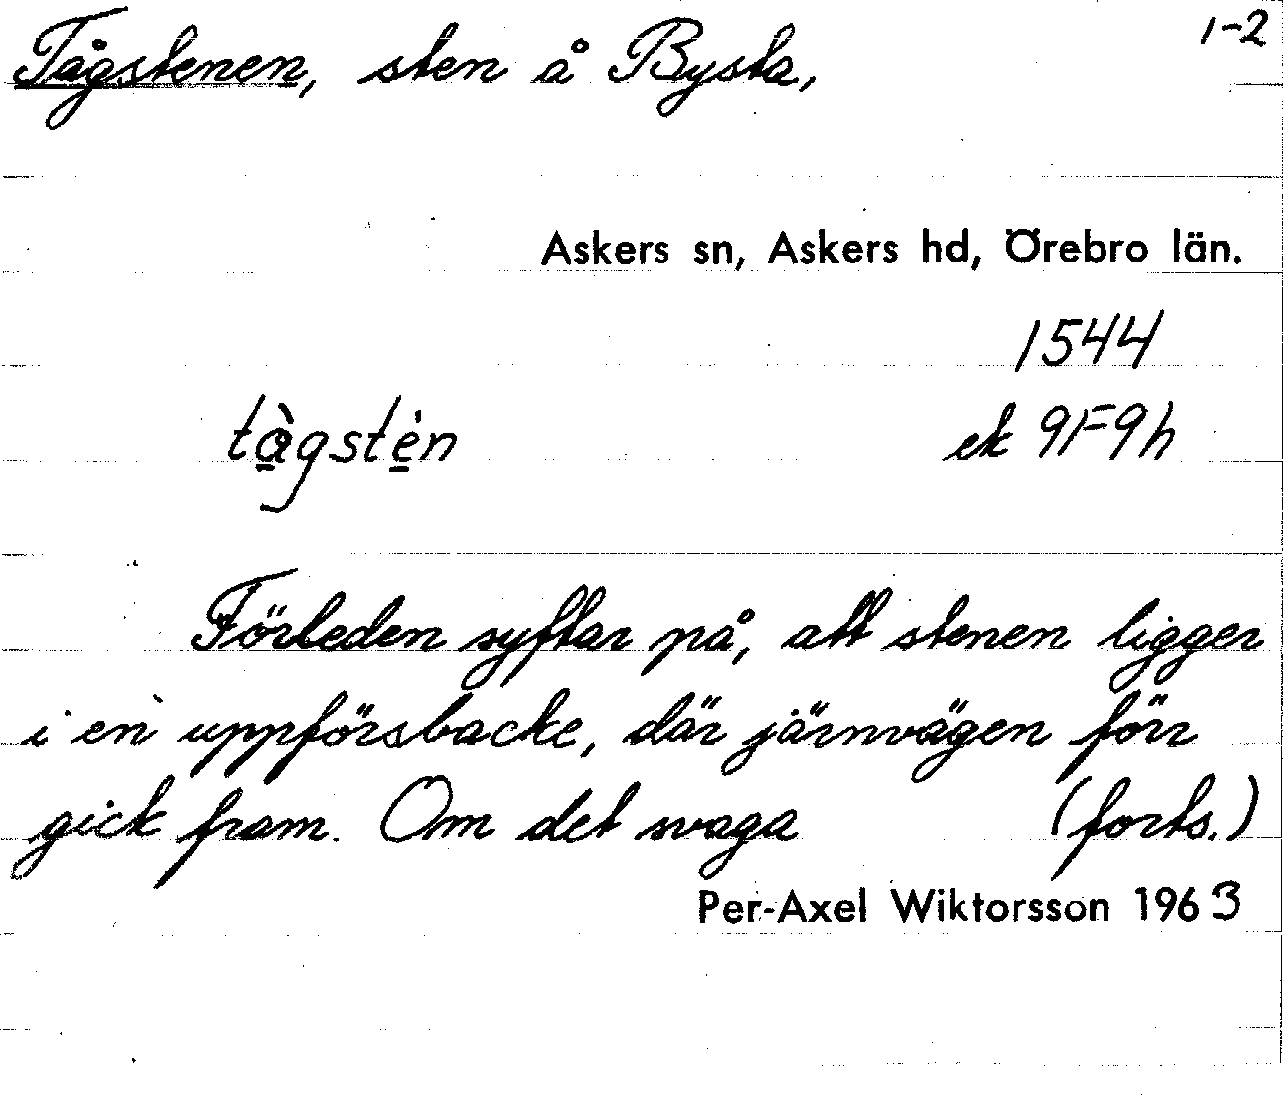 1-2
Tågstenen, sten å Bysta,
Askers sn, Askers hd, Örebro län.
1544
tà̲gstė̲n ek 9F9h
Förleden syftar på, att stenen ligger
i en uppförsbacke, där järnvägen förr
gick fram. Om det svaga (forts.)
Per-Axel Wiktorsson 1963